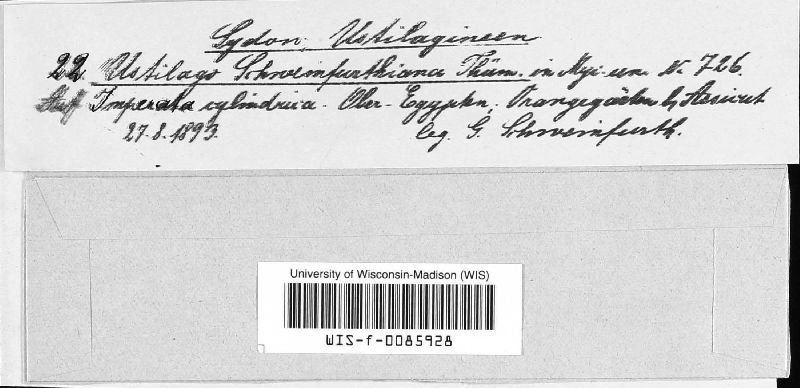 Sydow, Ustilagineen
22. Ustilago Schweinfurthiana Thüm. in Myc. un. N. 726.
Auf Imperata cylindrica. Ober-Egypten, Orangegärten b. Assiut
27.8.1893. leg. G. Schweinfurth.
University of Wisconsin-Madison (WIS)
WIS-f-0085928